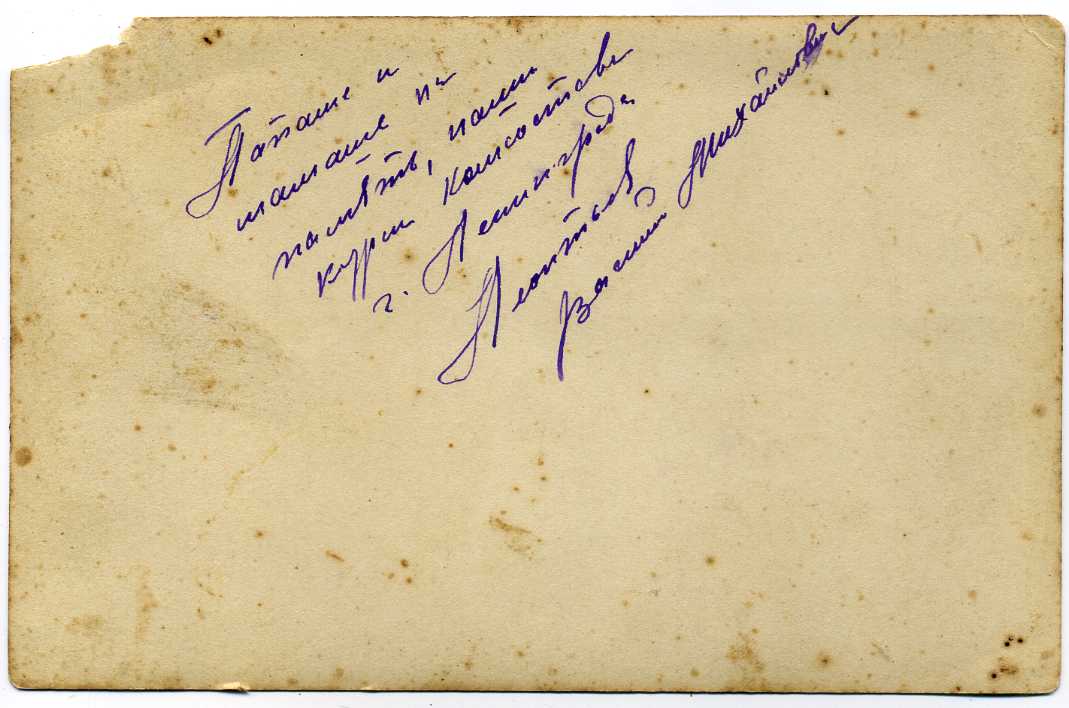 Папаше и
мамаше на
память, наши
курсы комсостава
г. Ленинграда
Леонтьев
Василий Михайлович